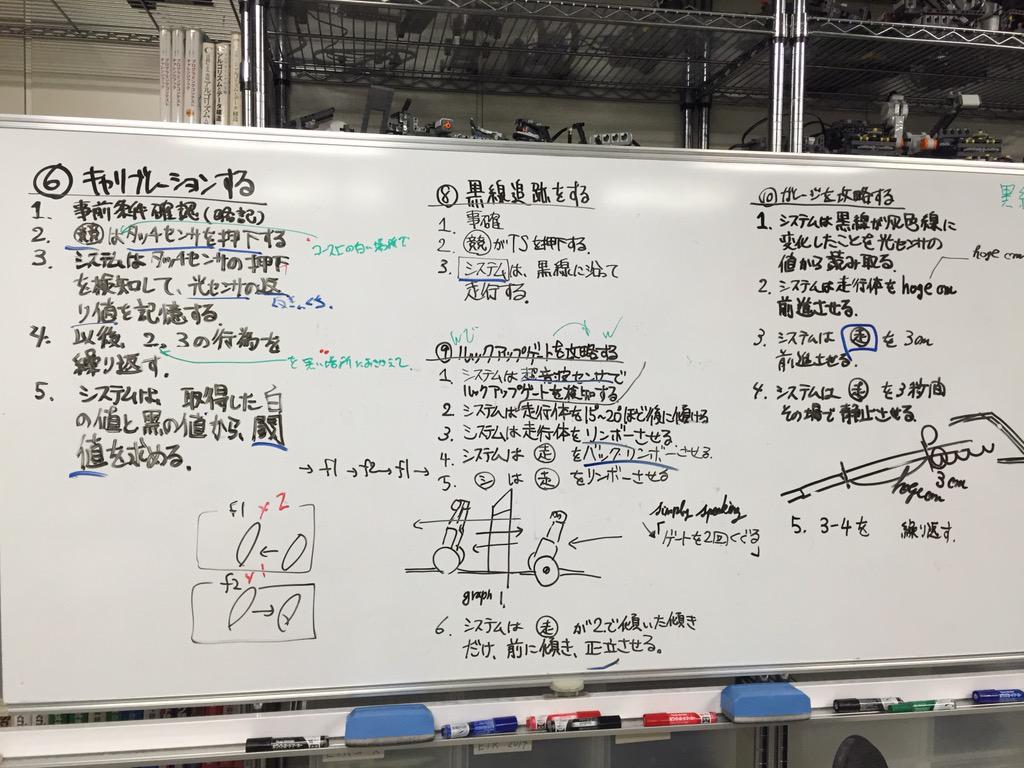 ⑥ キャリブレーションする
1. 事前条件確認(略記)
2. 競はタッチセンサを押下する
コース上の白い場所で
3. システムはタッチセンサの押下
を検知して、光センサの返
り値を記憶する
4. 以後、2、3の行為を
繰り返す。
を黒い場所におきかえて
5. システムは、取得した白
の値と黒の値から、閾
値を求める。
→ f1 → f2 → f1 →
f1 ×2
f2 ×1
⑧ 黒線追跡をする
1. 事確
2. 競がTSを押下する。
3. システムは、黒線に沿って
走行する。
⑨ ルックアップゲートを攻略する
1. システムは超音波センサで
ルックアップゲートを検知する
2 システムは走行体を15~20ほど後に傾ける
3. システムは走行体をリンボーさせる
4. システムは 走 をバックリンボーさせる.
5. シ は 走 をリンボーさせる
simply speaking
「ゲートを2回くぐる」
graph 1.
6. システムは 走 が2で傾いた傾き
だけ、前に傾き、正立させる。
⑩ ガレージを攻略する
1. システムは黒線が灰色線に
変化したことを光センサの
値から読み取る。
hoge cm
2. システムは走行体を hoge cm
前進させる.
3 システムは 走 を 3cm
前進させる
4. システムは 走 を3秒間
その場で静止させる.
3cm
hoge cm
5. 3-4を 繰り返す.
ETR 2014